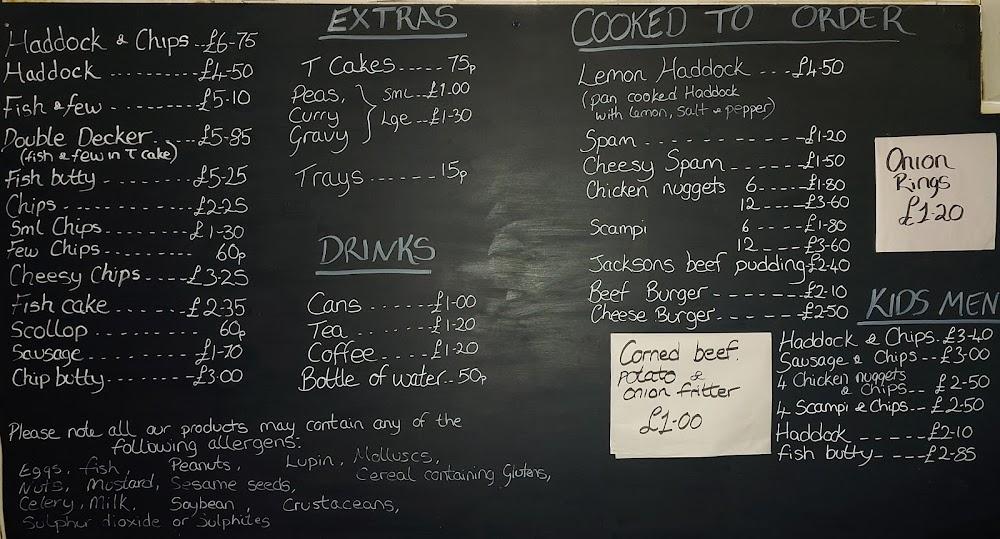 Haddock & Chips..£6-75
Haddock ..........£4-50
Fish & few ..........£5-10
Double Decker.....£5-85
(fish & few in T cake)
Fish butty ..........£5-25
Chips ..............£2-25
Sml Chips........£1-30
Few Chips ....... 60p
Cheesy Chips.....£3-25
Fish cake ........£2-35
Scollop .......... 60p
Sausage ..........£1-70
Chip butty.........£3-00
EXTRAS
T Cakes..... 75p
Peas,
Curry
Gravy
Sml...£1-00
Lge...£1-30
Trays ...... 15p
DRINKS
Cans ......£1-00
Tea.......£1-20
Coffee......£1-20
Bottle of water.. 50p
COOKED TO ORDER
Lemon Haddock ....£4-50
(pan cooked Haddock
with lemon, salt & pepper)
Spam ..............£1-20
Cheesy Spam .......£1-50
Chicken nuggets 6.....£1-80
12 ....£3-60
Scampi 6 ....£1-80
12 ....£3-60
Jacksons beef pudding £2-40
Beef Burger ........£2-10
Cheese Burger.......£2-50
Onion
Rings
£1-20
Corned beef.
Potato &
onion fritter
£1-00
KIDS MEN
Haddock & Chips.£3-40
Sausage & Chips..£3-00
4 Chicken nuggets
& Chips...£2-50
4 Scampi & Chips..£2-50
Haddock .....£2-10
fish butty.....£2-85
Please note all our products may contain any of the
following allergens:
Eggs, fish, Peanuts, Lupin, Molluscs,
Nuts, Mustard, Sesame seeds, Cereal containing Glutens,
Celery, Milk, Soybean, Crustaceans,
Sulphur dioxide or Sulphites